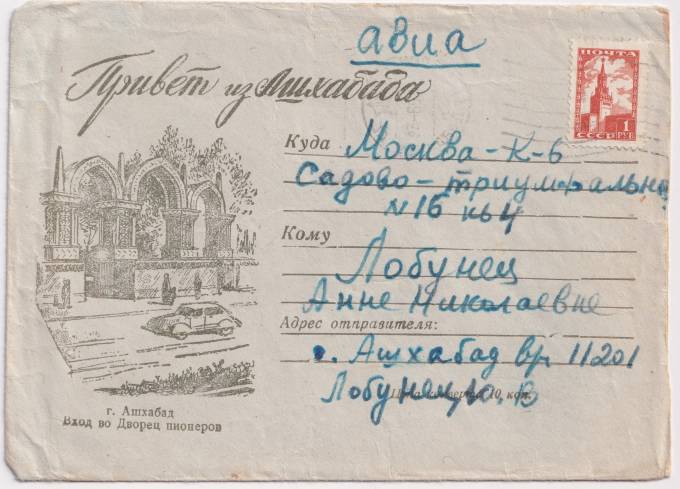 авиа
Привет из Ашхабада
ПОЧТА
1
РУБ
СССР
Куда Москва-К-6
Садово-триумфальн
N16 кв 4
Кому
Лобунец
Анне Николаевне
Адрес отправителя:
г. Ашхабад вр 11201
Лобунец Ю. В
Цена конверта 10 коп.
г. Ашхабад
Вход во Дворец пионеров